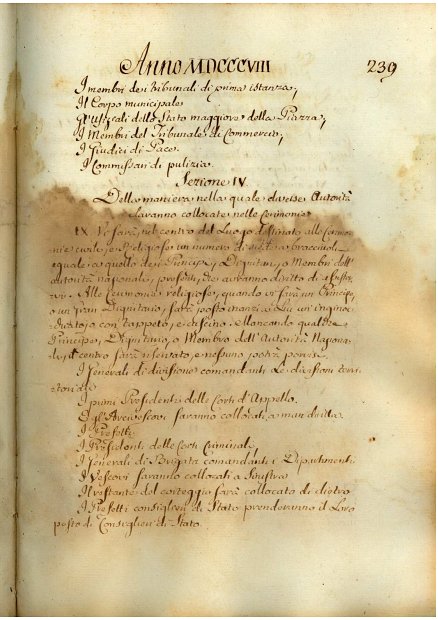 Anno MDCCCVIII 239
I membri dei tribunali di prima istanza;
Il Corpo municipale
Gl'Uffiziali dello Stato maggiore della Piazza;
I Membri del Tribunale di Commercio;
I Giudici di Pace
I Commissari di pulizia.
Sezione IV.
Della maniera nella quale diverse Autorità
saranno collocate nelle Cerimonie
IX Vi sarà nel centro del Luogo destinato alle cerimo-
nie civili, e Religiose un numero di a braccioli
eguale a quello dei Principi, Dignitari, o Membri dell'
autorità nazionale, presenti, che avranno diritto di
Alle Cerimonie religiose, quando vi sarà un Principe,
o un gran Dignitario, sarà posto innanzi a Lui un'inginoc-
chiatojo con tappeto, e cuscino. Mancando qualche
Principe, Dignitario, o Membro dell'Autorità Naziona-
le, il centro sarà riservato, e nessuno potrà
I Generali di divisione comandanti le divisioni terri-
toriali
I primi Presidenti delle Corti d'Appello.
E gl'Arcivescovi saranno collocati a man diritta.
I Prefetti
I Presidenti delle Corti Criminali,
I Generali di Brigata comandanti i Dipartimenti
I Vescovi saranno collocati a Sinistra
Il restante del corteggio sarà collocato di dietro
I Prefetti consiglieri di Stato prenderanno il Loro
posto di Consiglieri di Stato.